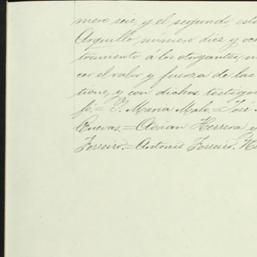 mero seis, y el segundo
Arquillo, número diez y
trumento á los otorgantes,
cer el valor y fuerza de las
tiene, y con dichos testigos
fe = P. Mena Malo = José
Cuevas = Adrian Herrera y
Ferreiro = Antonio Ferreiro,